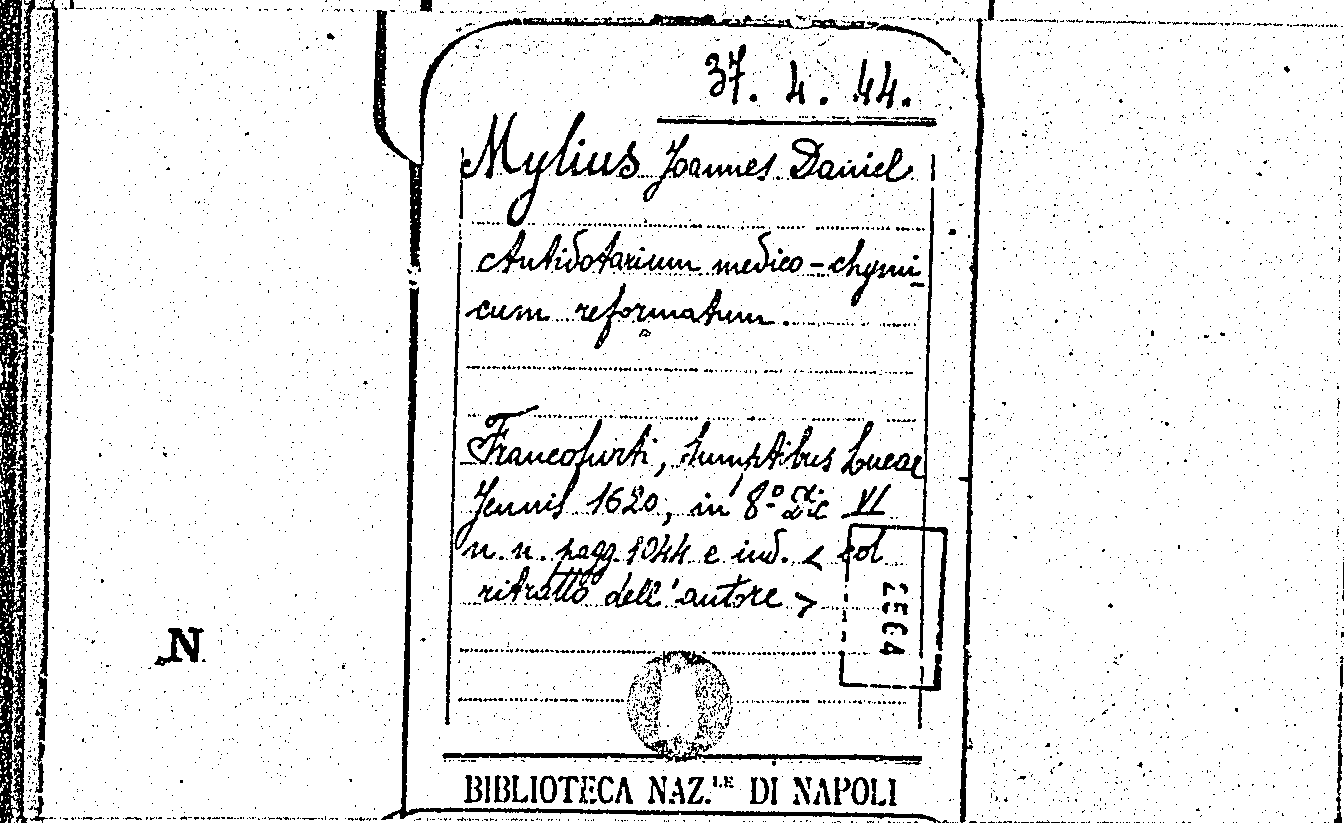 37. 4. 44.
Mylius Joannes Daniel
Antidotarium medico-chymi-
cum reformatum.
Francofurti, sumptibus Lucae
Jennis 1620, in 8º
VI
n. n. pagg. 1044 e ind. < col
ritratto dell'autore >
N
BIBLIOTECA NAZ.LE DI NAPOLI